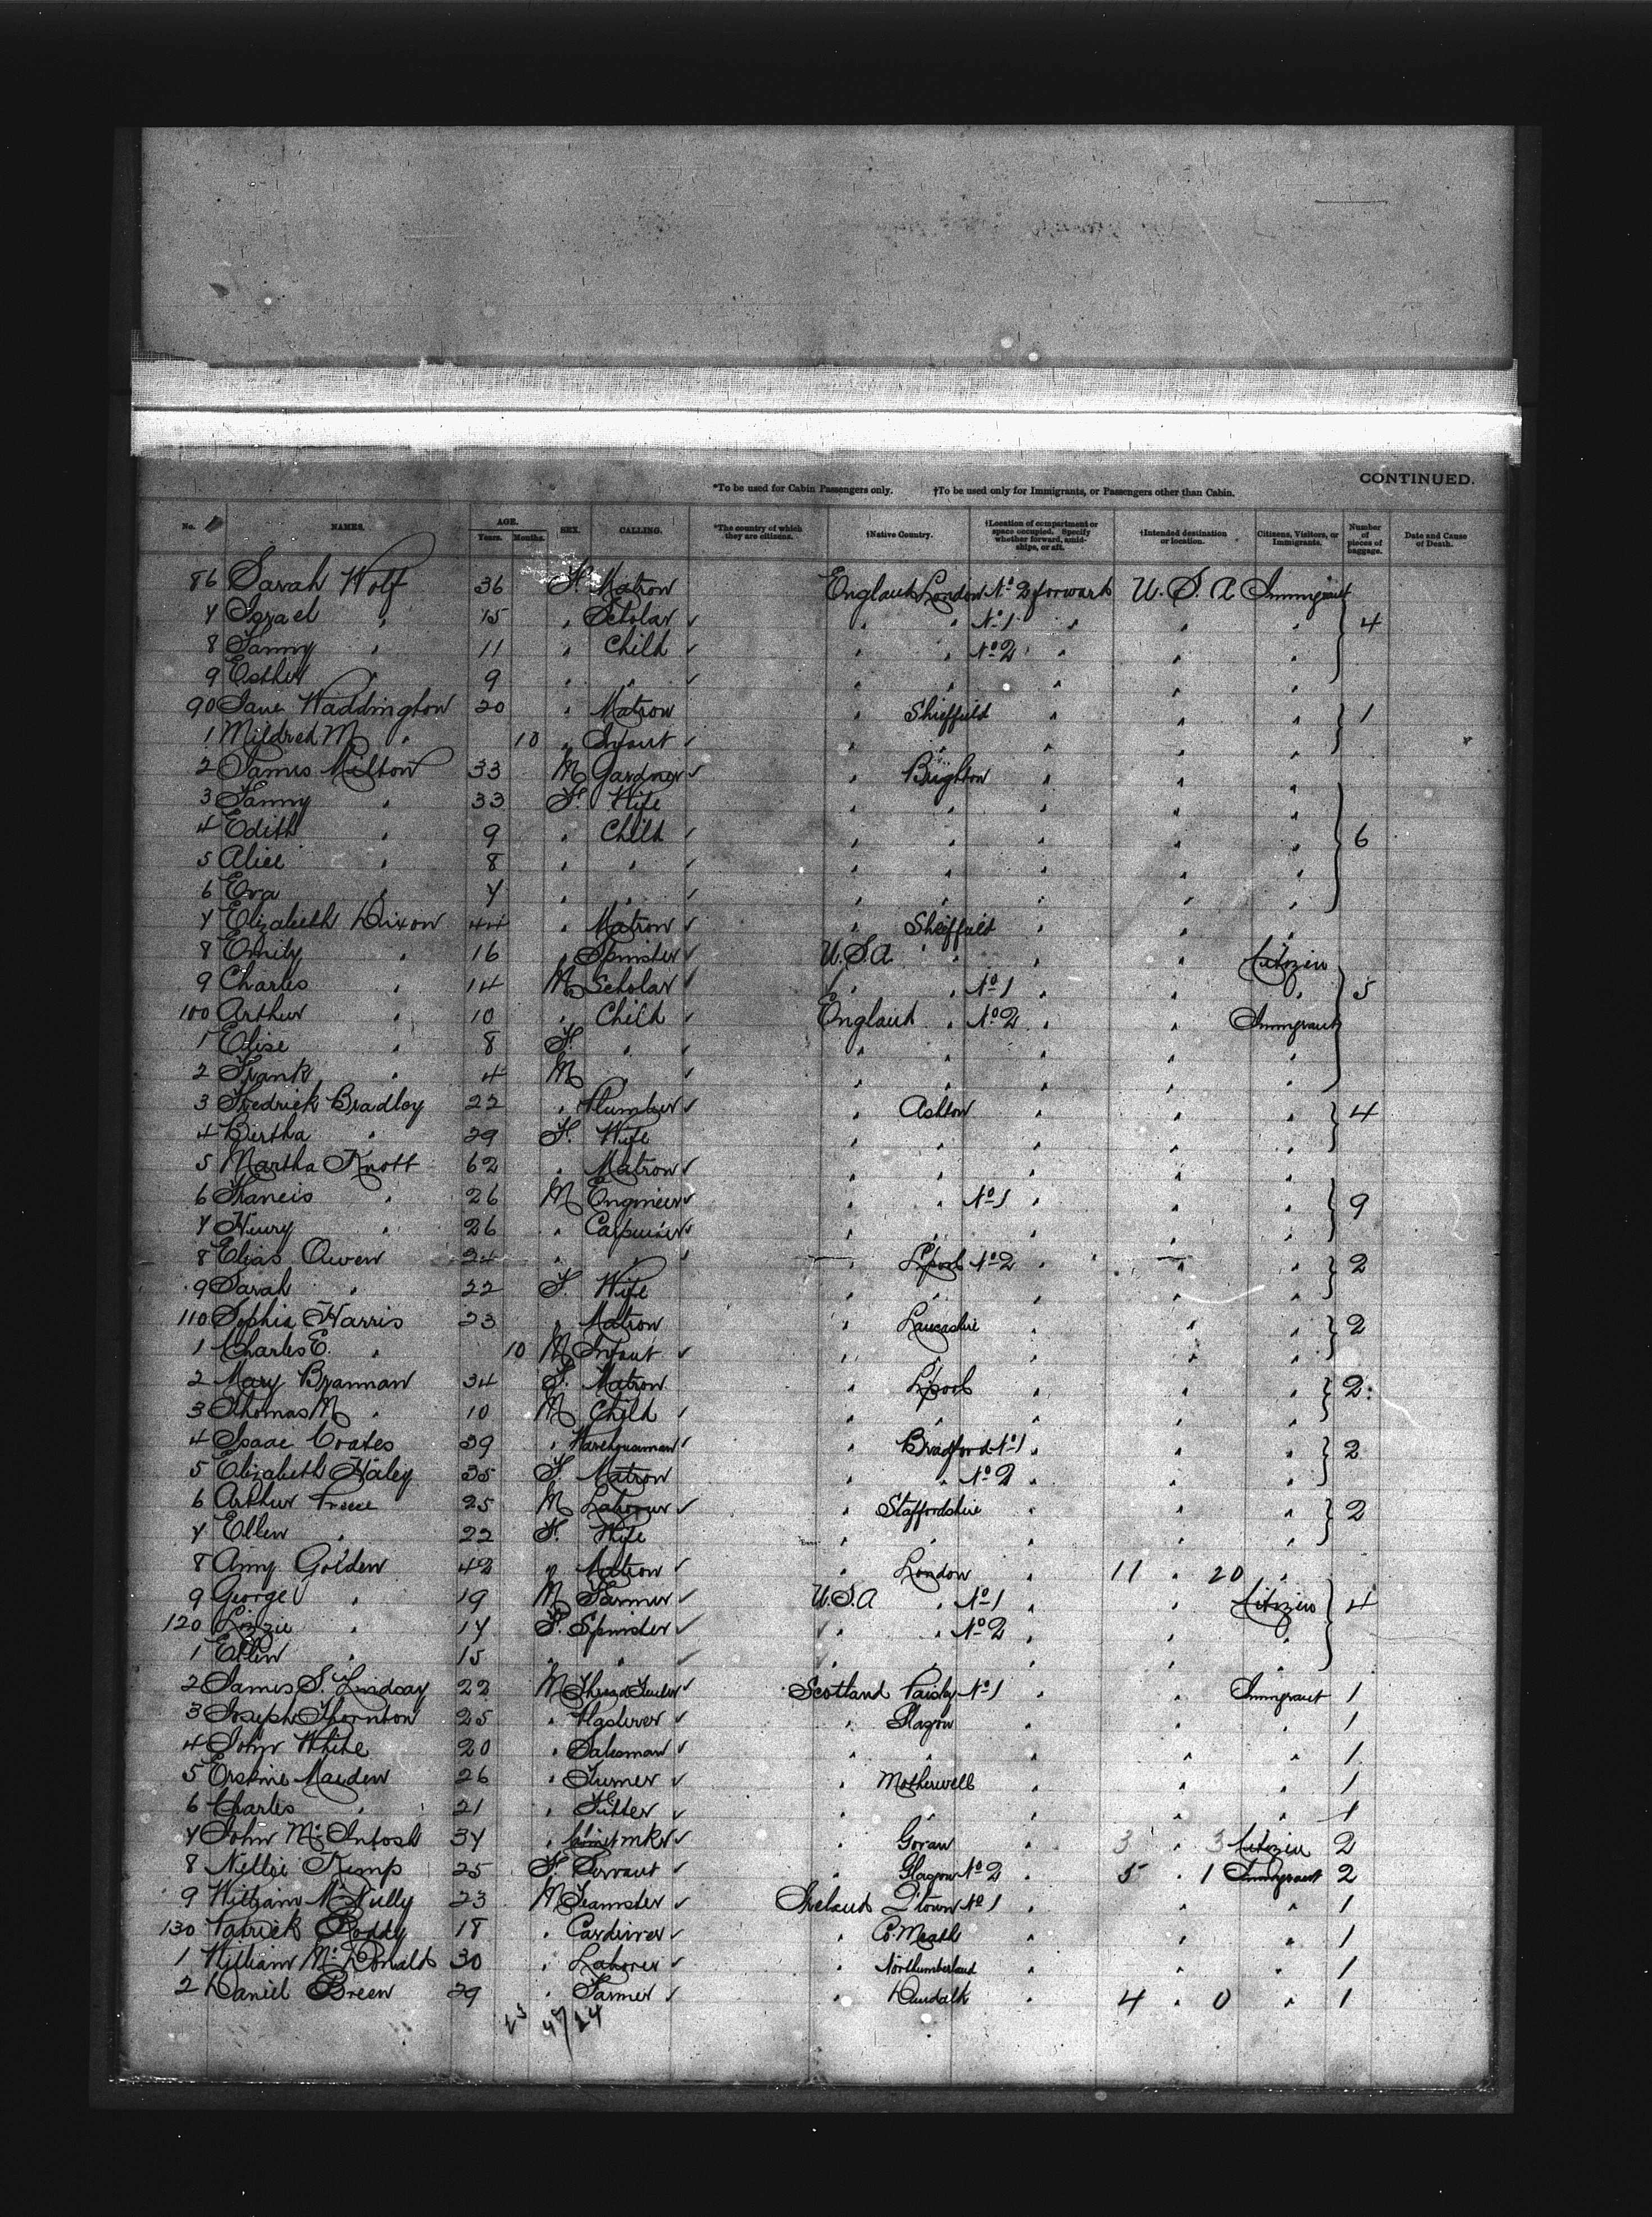 CONTINUED.
*To be used for Cabin Passengers only. †To be used only for Immigrants, or Passengers other than Cabin.
No. NAMES. AGE. Years. Months. SEX. CALLING. *The country of which they are citizens. †Native Country. †Location of compartment or space occupied. Specify whether forward, amidships, or aft. †Intended destination or location. Citizens, Visitors, or Immigrants. Number of pieces of baggage. Date and Cause of Death.
86 Sarah Wolf 36 F. Matron England London No 2 forward U.S.A Immigrant
7 Israel " 15 " Scholar ✓ " " No 1 " " "
4
8 Fanny " 11 " Child ✓ " " No 2 " " "
9 Esther " 9 " " ✓ " " " " "
90 Jane Waddington 20 " Matron " Sheffield " " " 1
1 Mildred M " 10 " Infant ✓ " " " " "
2 James Milton 33 M Gardner ✓ " Brighton " " "
3 Fanny " 33 F. Wife " " " " "
4 Edith " 9 " Child ✓ " " " " " 6
5 Alice " 8 " " ✓ " " " " "
6 Eva " 7 " " ✓ " " " " "
7 Elizabeth Dixon 44 " Matron ✓ " Sheffield " " "
8 Emily " 16 " Spinster ✓ U.S.A " " " Citizen
9 Charles " 14 M Scholar ✓ " " No 1 " " " 5
100 Arthur " 10 " Child ✓ England " No 2 " " Immigrant
1 Elise " 8 F. " ✓ " " " " "
2 Frank " 4 M " ✓ " " " " "
3 Fredrick Bradley 22 " Plumber ✓ " Ashton " " " 4
4 Bertha " 29 F. Wife " " " " "
5 Martha Knott 62 " Matron ✓ " " " " "
6 Francis " 26 M Engineer ✓ " " No 1 " " " 9
7 Henry " 26 " Carpenter ✓ " " " " "
8 Elias Owen 24 " " ✓ " L'pool No 2 " " " 2
9 Sarah " 22 F. Wife " " " " "
110 Sophia Harris 23 " Matron " Lancashire " " " 2
1 Charles E. " 10 M Infant ✓ " " " " "
2 Mary Brannan 34 F. Matron " L'pool " " " 2
3 Thomas M " 10 M Child ✓ " " " " "
4 Isaac Coates 39 " Warehouseman ✓ " Bradford No 1 " " " 2
5 Elizabeth Haley 35 F. Matron " " No 2 " " "
6 Arthur 25 M Labourer ✓ " Staffordshire " " " 2
7 Ellen " 22 F. Wife " " " " "
8 Amy Golden 42 " Matron ✓ " London " 11 " 20 "
9 George " 19 M Farmer ✓ U.S.A " No 1 " " Citizen 4
120 Lizzie " 17 F. Spinster ✓ " " No 2 " " "
1 Ellen " 15 " " ✓ " " " " "
2 James S. Lindsay 22 M ✓ Scotland Paisly No 1 " " Immigrant 1
3 Joseph Thornton 25 " Plasterer ✓ " Glagow " " 1
4 John White 20 " Salesman ✓ " " " " " 1
5 Erskine Maiden 26 " Turner ✓ " Motherwell " " " 1
6 Charles " 21 " Fitter ✓ " " " " " 1
7 John McIntosh 37 " mkr ✓ " Govan 3 " 3 Citizen 2
8 Nellie Kemp 25 F Servant ✓ " Glagow No 2 " 5 " 1 Immigrant 2
9 William 23 M Teamster ✓ Ireland Q'town No 1 " " " 1
130 Patrick Roddy 18 " Cardiner ✓ " Co. Meath " " " 1
1 William McDonald 30 " Laborer ✓ " Northumberland " " " 1
2 Daniel Breen 29 " Farmer ✓ " Dundalk " 4 " 0 " 1